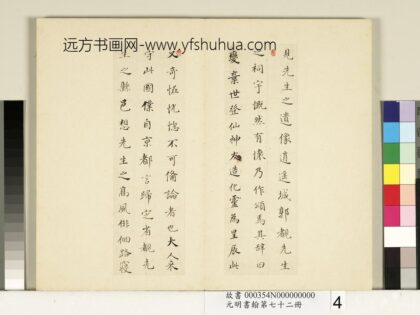 远方书画网-www.yfshuhua.com
見先生之遺像逍遥城郭覩先生
之祠宇慨然有懷乃作頌焉其辞曰
棄世登仙神造化靈為星辰此
又奇怪恍惚不可備論者也大人来
守此國僕自京都言歸定省覩先
生之縣邑想先生之高風徘徊路寢
故書 000354N000000000
元明書翰第七十二冊
4